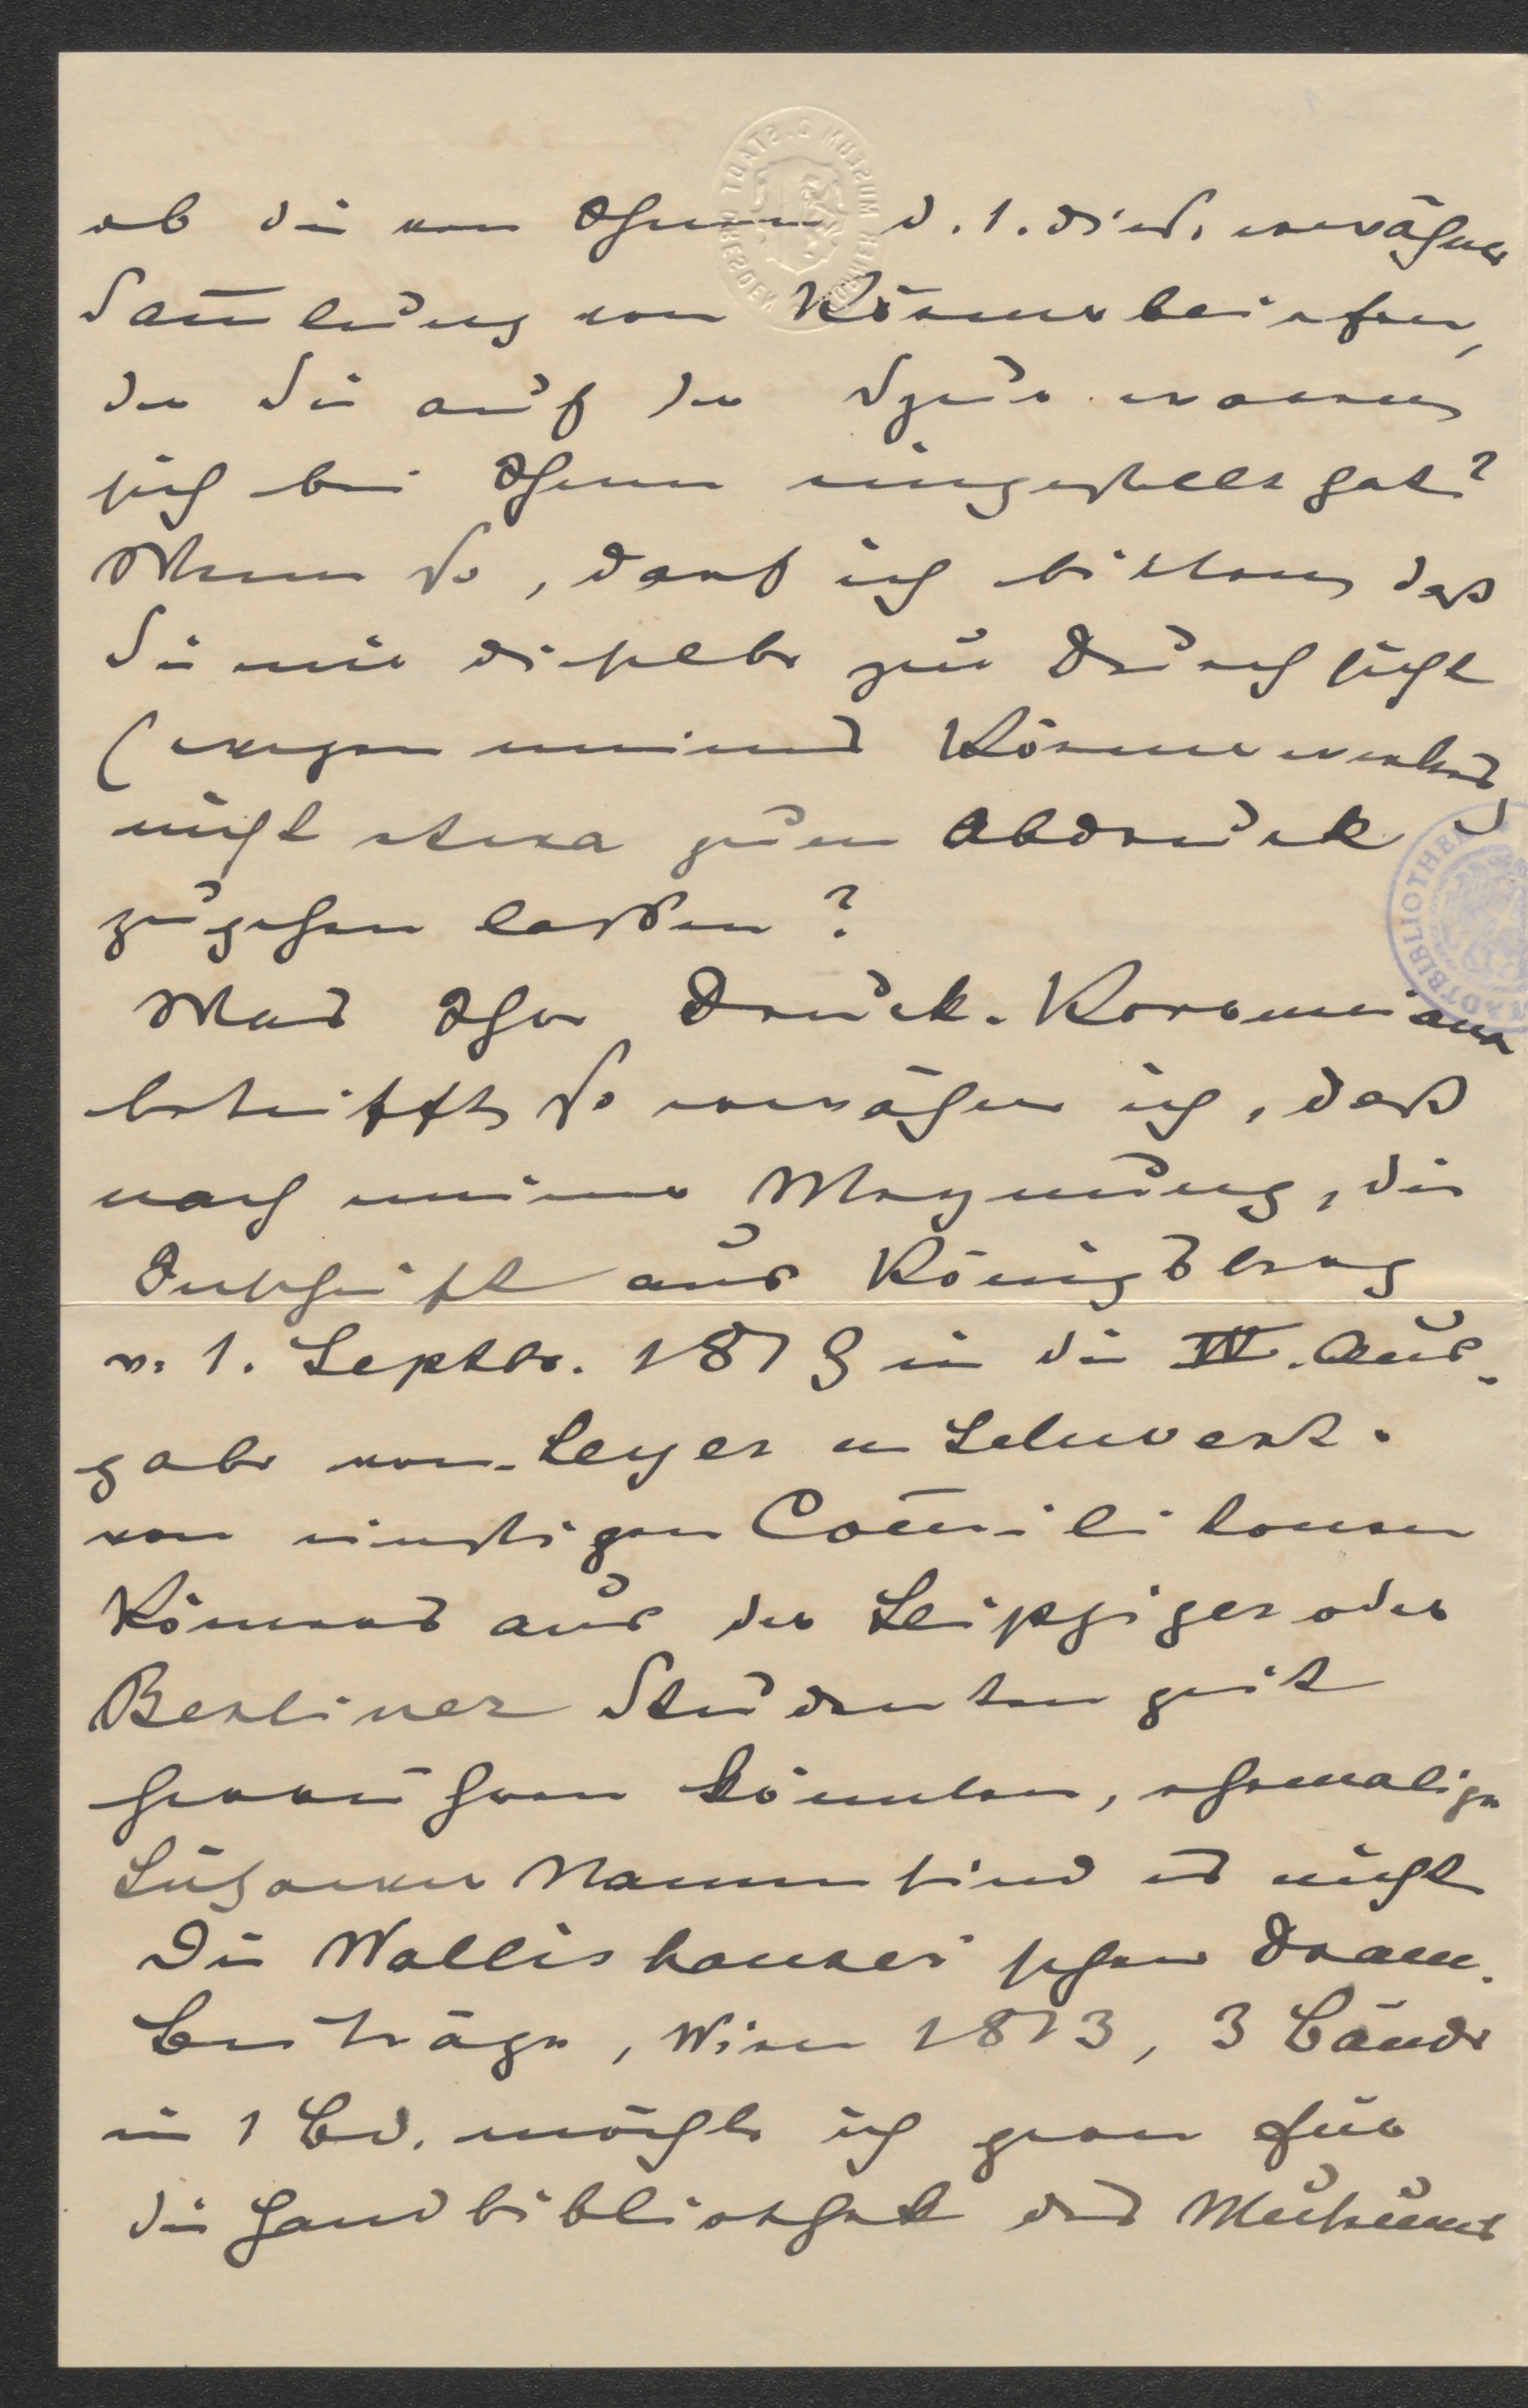 ob die von Ihnen d. 1. dies. erwähnte
Samlung von Körnerbriefen,
der Sie auf der Spur waren
sich bei Ihnen eingestellt hat?
Wenn so, darf ich bitten, daß
Sie mir dieselbe zur Durchsicht
(wegen meines Körnerwerkes,
nicht etwa zum Abdruck)
zugehen lassen?
Was Ihre Druck-Korneriana
betrifft, so erwähne ich, daß
nach meiner Meynung, die
Inschrift aus Königsberg
v. 1. Septbr. 1819 in die IV. Aus-
gabe von Leyer u Schwert.
von einstigen Comilitonen
Körners aus der Leipziger oder
Berliner Studentenzeit
herrühren könnten, ehemalige
Lützower Namen sind es nicht
Die Wallishausser'schen Dram.
Beiträge, Wien 1813, 3 Bände
in 1 Bd. möchte ich gern für
die Handbibliothek des Museums
MUSEUM D. STADT DRESDEN
STADTBIBLIOTHEK